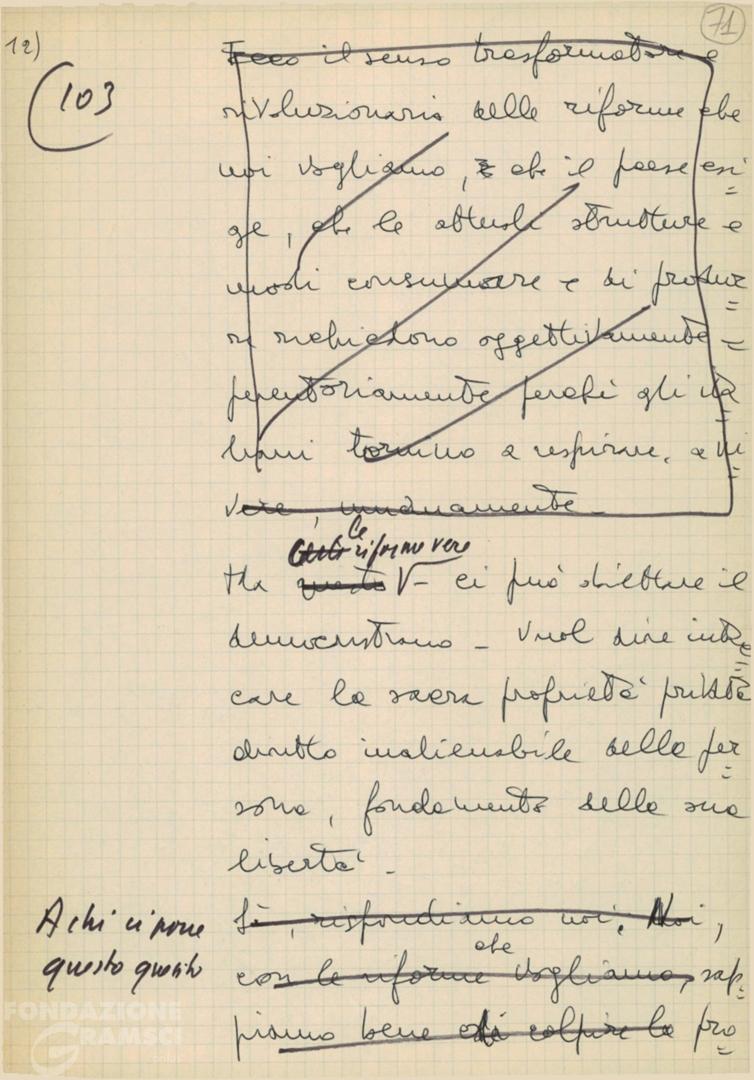 71
12)
103
Ecco il senso trasformatore e
rivoluzionario delle riforme che
noi vogliamo, e che il paese esi=
ge, che le attuali strutture e
modi consumare e di produr=
re richiedono oggettivamente =
perentoriamente perché gli ita=
liani tornino a respirare, a vi=
vere, umanamente -
le
riforme vere
Ma questo V- ci può obiettare il
democristiano - Vuol dire intac=
care la sacra proprietà privata
diritto inalienabile della per=
sona, fondamento della sua
libertà -
A chi ci pone
questo quesito
Sì, rispondiamo noi. Noi,
che
con le riforme vogliamo, sap=
piamo bene di colpire la pro=
FONDAZIONE
GRAMSCI